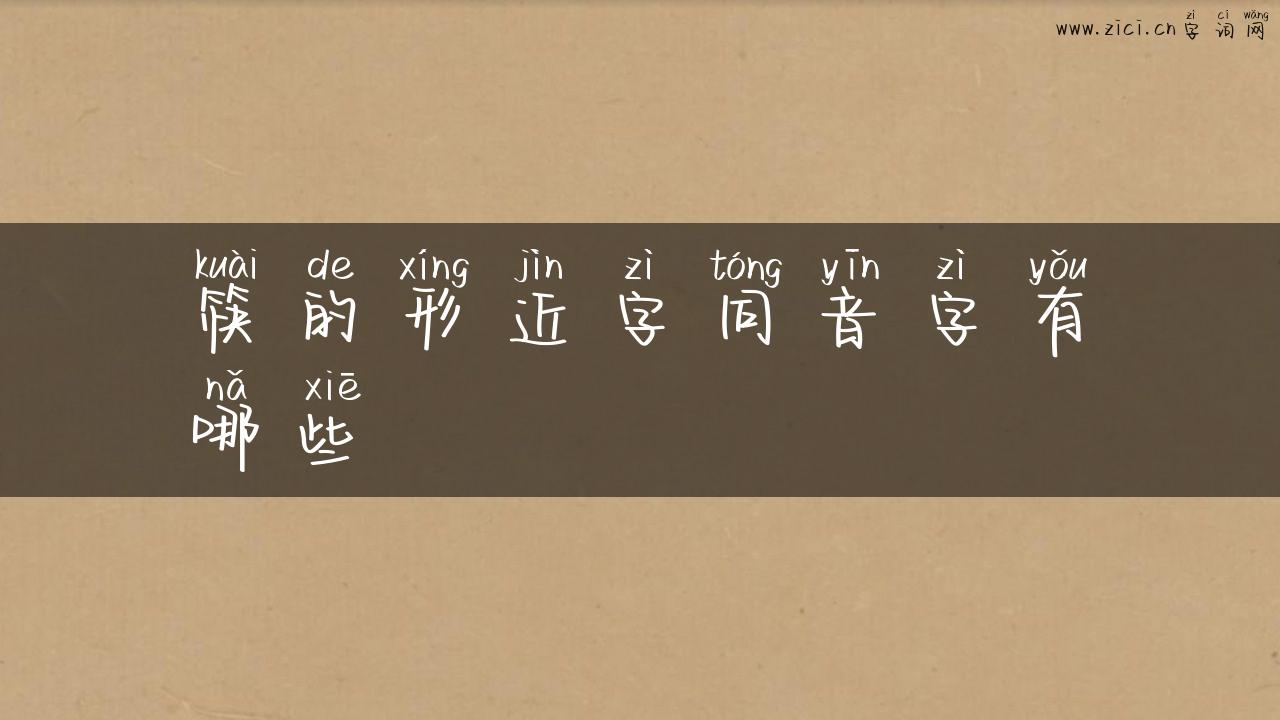 zì cí wǎng
www.zici.cn 字词网
kuài de xíng jìn zì tóng yīn zì yǒu
筷的形近字同音字有
nǎ xiē
哪些